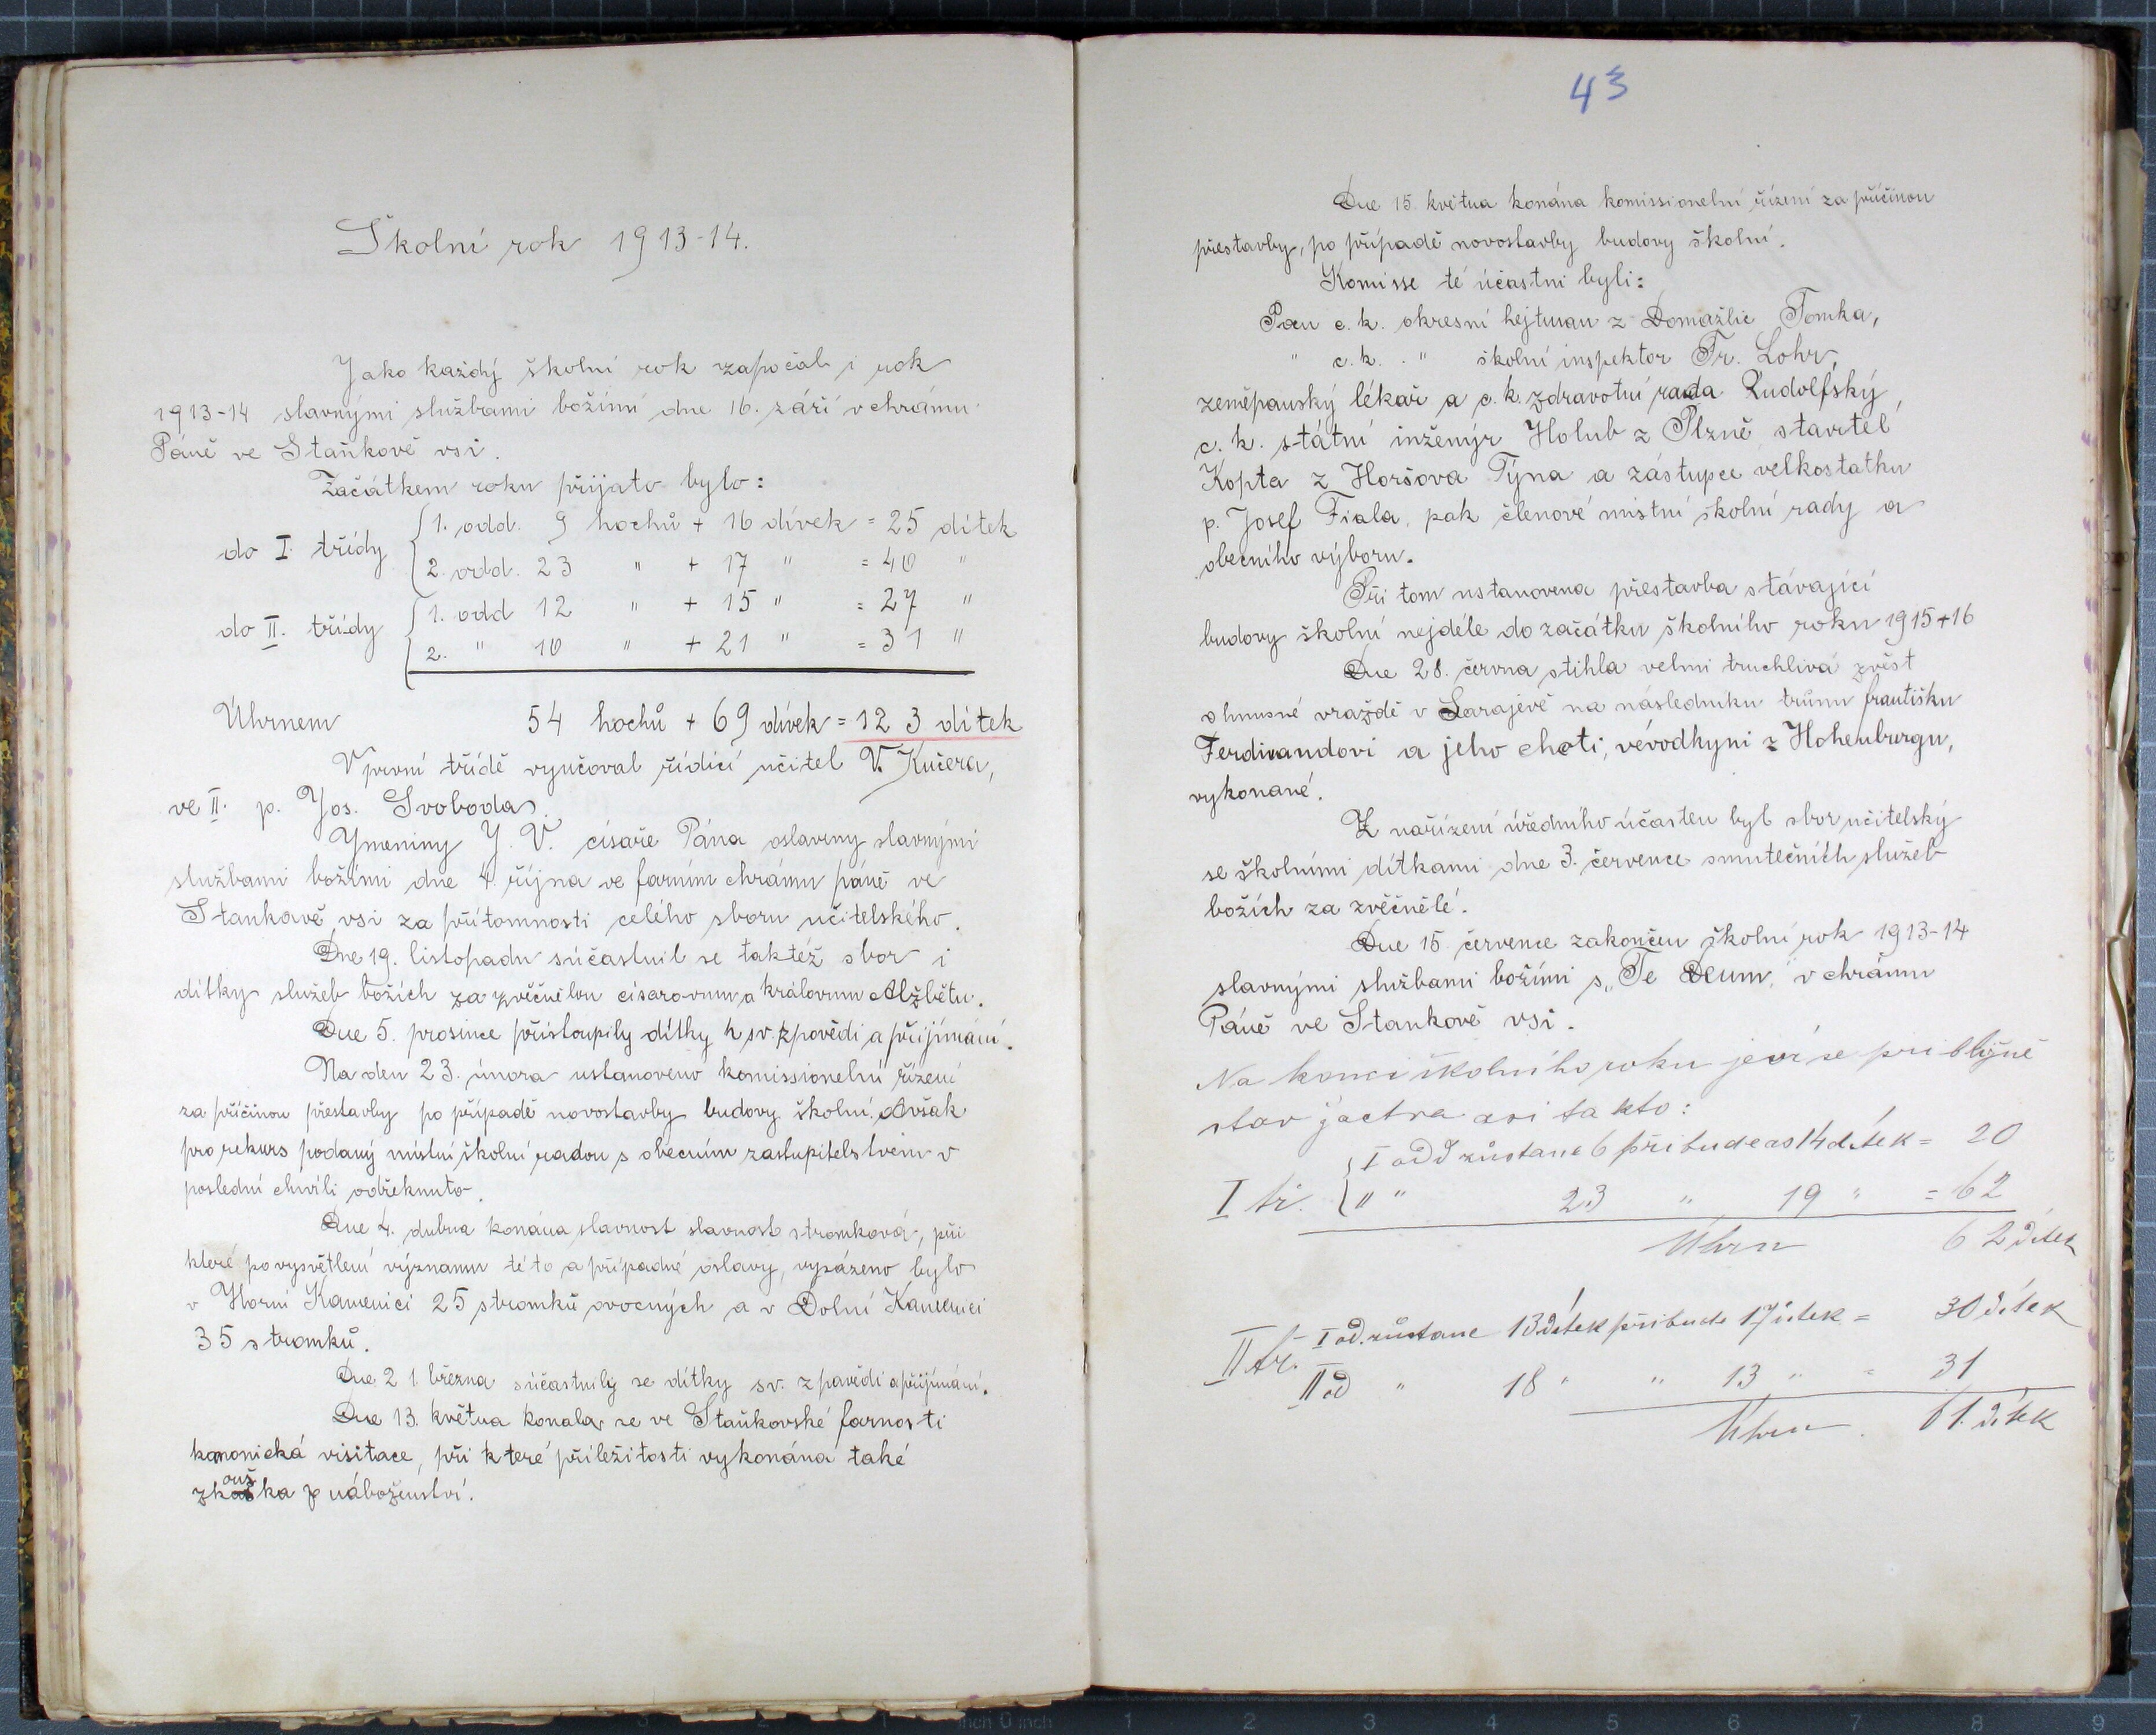 Školní rok 1913-14.
Jako každý školní rok započal i rok
1913-14 slavnými službami božími dne 16. září v chrámu
Páně ve Staňkově vsi.
Začátkem roku přijato bylo:
do I. třídy { 1. odd. 9 hochů + 16 dívek = 25 dítek
2. odd. 23 " + 17 " = 40 "
do II. třídy { 1. odd 12 " + 15 " = 27 "
2. " 10 " + 21 " = 31 "
Úhrnem 54 hochů + 69 dívek = 123 dítek
V první třídě vyučoval řídící učitel V. Kučera,
ve II. p. Jos. Svoboda.
Jmeniny J. V. císaře Pána oslaveny slavnými
službami božími dne 4. října ve farním chrámu páně ve
Stankově vsi za přítomnosti celého sboru učitelského.
Dne 19. listopadu súčastnil se taktéž sbor i
dítky služeb božích za zvěčnělou císařovnu a královnu Alžbětu.
Dne 5. prosince přistoupily dítky k sv. zpovědi a přijímání.
Na den 23. února ustanoveno komissionelní řízení
za příčinou přestavby po případě novostavby budovy školní. Avšak
pro rekurs podaný místní školní radou s obecním zastupitelstvem v
poslední chvíli odřeknuto.
Dne 4. dubna konána slavnost slavnost stromková, při
které po vysvětlení významu této a případné oslavy, vysázeno bylo
v Horní Kamenici 25 stromků ovocných a v Dolní Kamenici
35 stromků.
Dne 21. března súčastnily se dítky sv. zpovědi a přijímání.
Dne 13. května konala se ve Staňkovské farnosti
kanonická visitace, při které příležitosti vykonána také
zkouška z náboženství.
43
Dne 15. května konána komissionelní řízení za příčinou
přestavby, po případě novostavby budovy školní.
Komisse té účastni byli:
Pan c. k. okresní hejtman z Domažlic Tomka,
" c. k. " školní inspektor Fr. Lohr,
zeměpanský lékař a c. k. zdravotní rada Rudolfský,
c. k. státní inženýr Holub z Plzně stavitel
Kopta z Horšova Týna a zástupce velkostatku
p. Josef Fiala, pak členové místní školní rady a
obecního výboru.
Při tom ustanovena přestavba stávající
budovy školní nejdéle do začátku školního roku 1915+16
Dne 28. června stihla velmi truchlivá zvěst
o hnusné vraždě v Sarajévě na následníku trůnu františku
Ferdinandovi a jeho choti, vévodkyni z Hohenburgu,
vykonané.
Z nařízení úředního účasten byl sbor učitelský
se školními dítkami dne 3. července smutečních služeb
božích za zvěčnělé.
Dne 15. července zakončen školní rok 1913-14
slavnými službami božími s „Te Deum," v chrámu
Páně ve Stankově vsi.
Na konci školního roku jeví se přibližně
stav žactva asi takto:
I odd zůstane 6 přibude as 14 dítek = 20
I tř. { II " 23 " 19 " = 62
Úhrn 62 dítek
II tř. I od. zůstane 13 dítek přibude 17 dítek = 30 dítek
II od " 18 " " 13 " = 31
Úhrn. 61. dítek